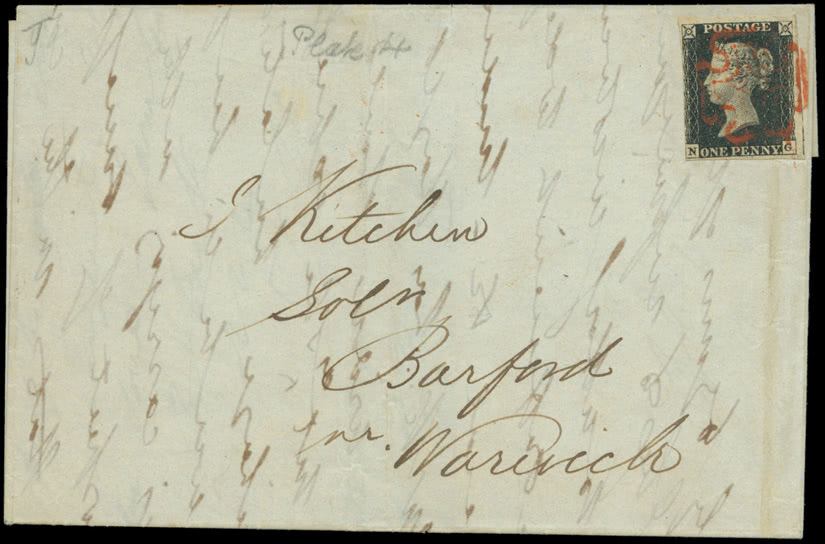 Plate 4
POSTAGE
N ONE PENNY. G
J Kitchen
Solr
Barford
nr. Warwick